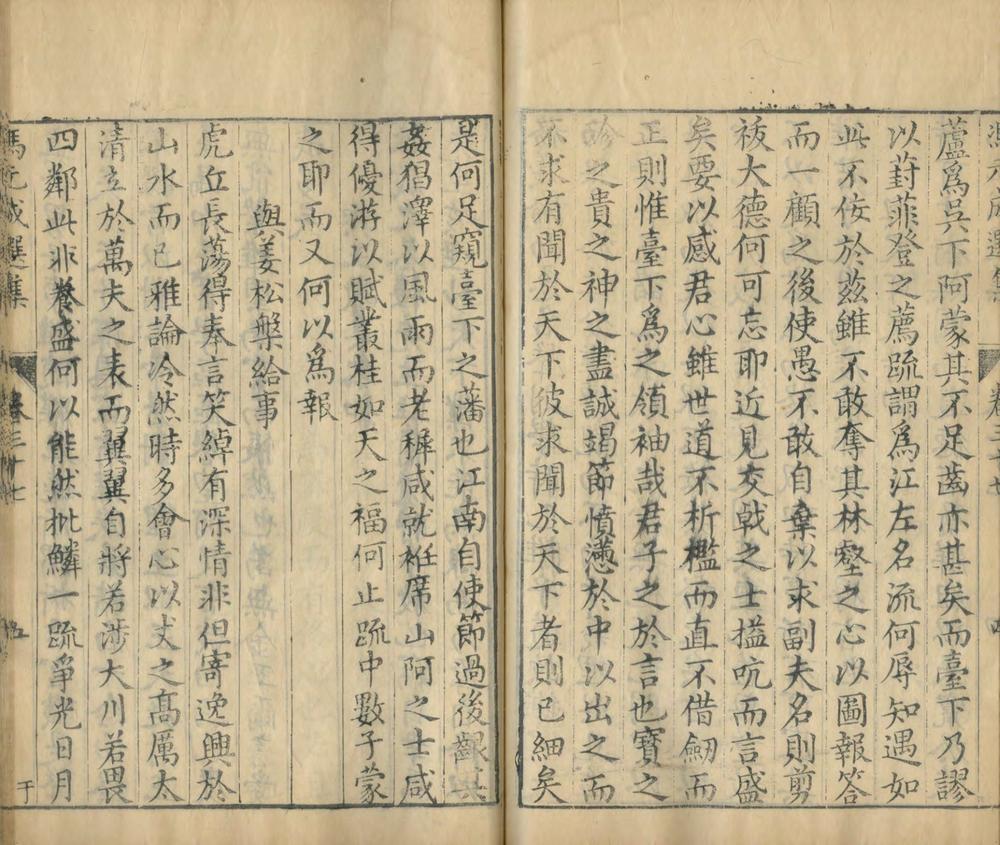 蘆爲吳下阿蒙其不足齒亦甚矣而臺下乃謬
以葑菲登之薦疏謂爲江左名流何辱知遇如
此不佞於茲雖不敢奪其林壑之心以圖報答
而一顧之後使愚不敢自棄以求副夫名則剪
祓大德何可忘耶近見交戟之士搤吭而言盛
矣要以感君心雖世道不折檻而直不借劒而
正則惟臺下爲之領袖哉君子之於言也寶之
之貴之神之盡誠竭節憤懣於中以出之而
不求有聞於天下彼求聞於天下者則已細矣
是何足窺臺下之藩也江南自使節過後
姦猖澤以風雨而老穉咸就袵席山阿之士咸
得優游以賦叢桂如天之福何止疏中數子蒙
之耶而又何以爲報
與姜松槃給事
虎丘長蕩得奉言笑綽有深情非但寄逸興於
山水而已雅論冷然時多會心以丈之高厲太
清立於萬夫之表而翼翼自將若涉大川若畏
四鄰此非養盛何以能然批鱗一疏爭光日月
馮元成選集
卷三十七
五
于